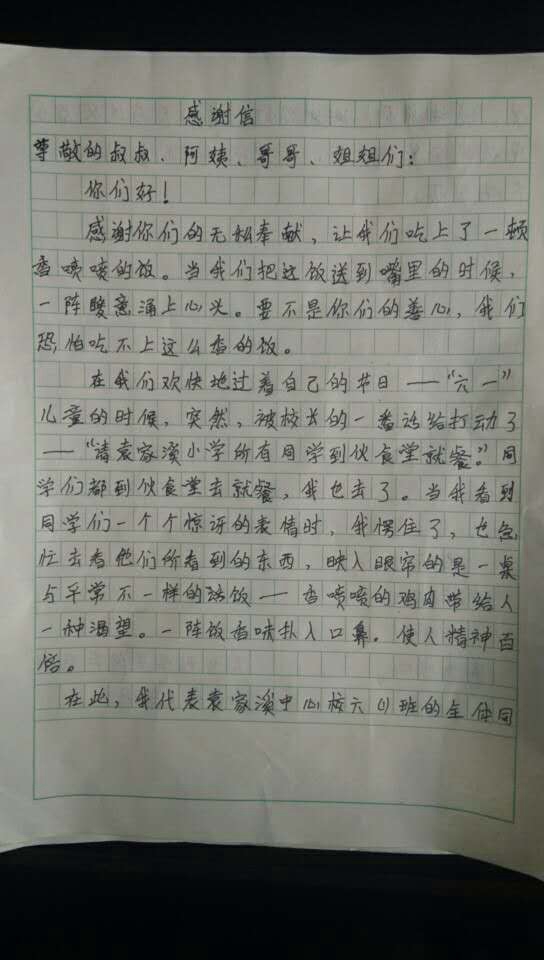 感谢信
尊敬的叔叔、阿姨、哥哥、姐姐们：
你们好！
感谢你们的无私奉献，让我们吃上了一顿
香喷喷的饭。当我们把这饭送到嘴里的时候，
一阵暖意涌上心头。要不是你们的善心，我们
恐怕吃不上这么香的饭。
在我们欢快地过着自己的节日——“六一”
儿童的时候，突然，被校长的一番话给打动了
——“请袁家溪小学所有同学到伙食堂就餐。”同
学们都到伙食堂去就餐，我也去了。当我看到
同学们一个个惊讶的表情时，我愣住了，也急
忙去看他们所看到的东西，映入眼帘的是一桌
与平常不一样的饭——香喷喷的鸡肉带给人
一种渴望。一阵饭香味扑入口鼻。使人精神百
倍。
在此，我代表袁家溪中心校六(1)班的全体同